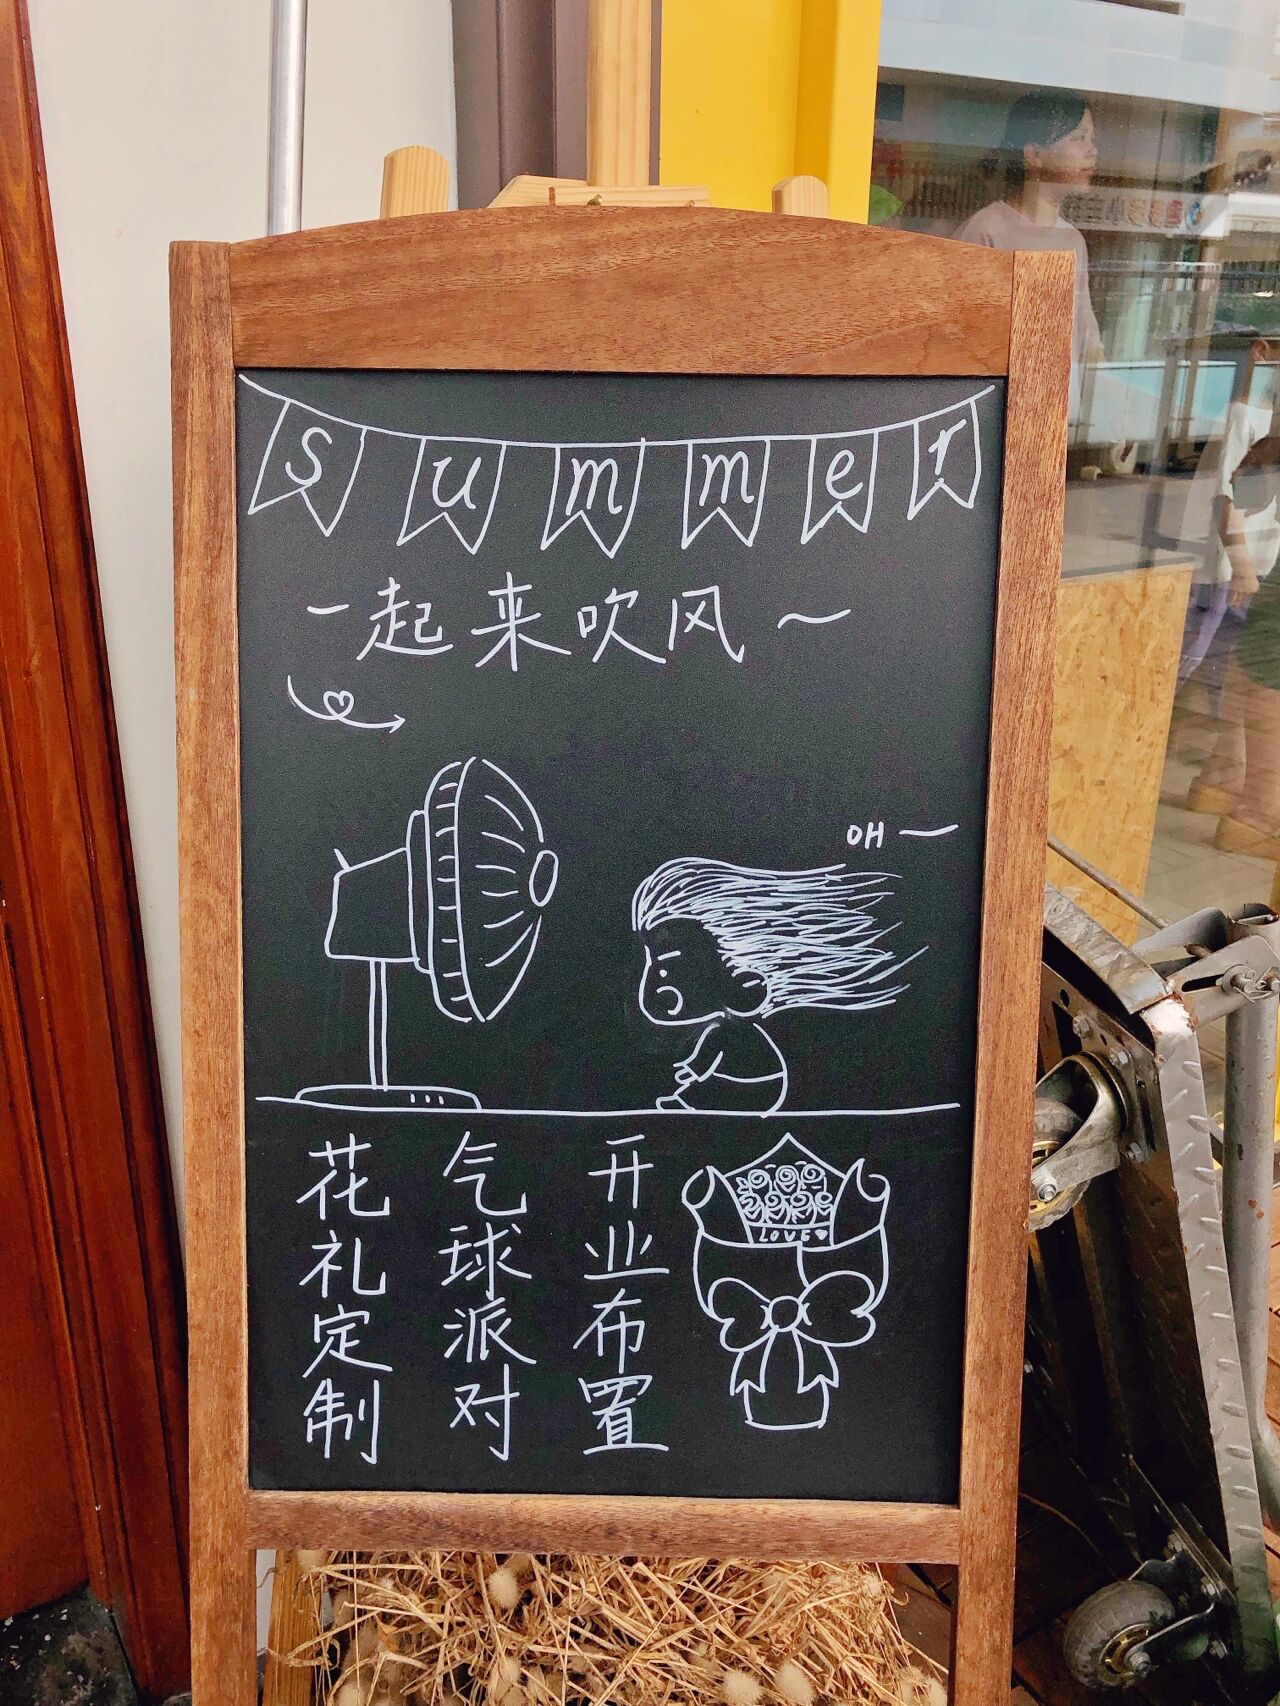 summer
一起来吹风～
OH —
花礼定制
气球派对
开业布置
LOVE